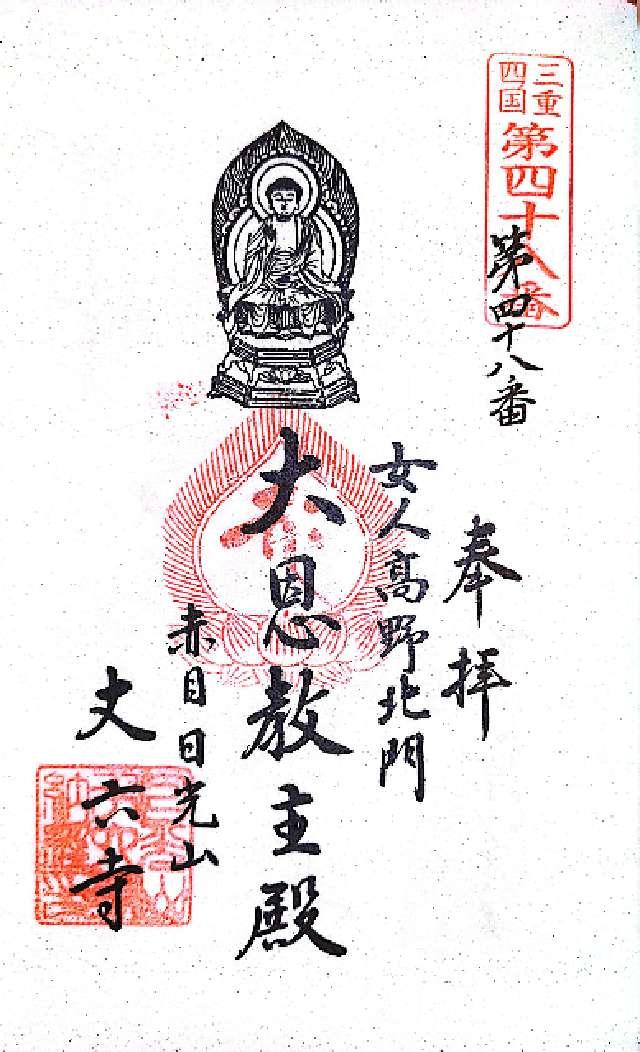 三重
四国
第四十八番
第四十八番
奉拝
女人高野北門
大恩教主殿
赤目日光山
丈六寺